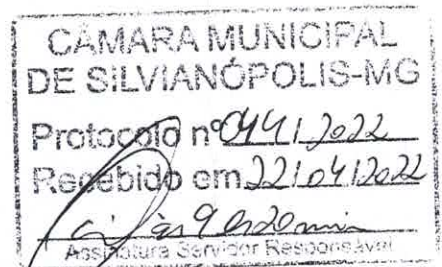 CÂMARA MUNICIPAL
DE SILVIANÓPOLIS-MG
Protocolo nº 044/2022
Recebido em 22/04/2022
às 9:20 min
Assinatura Servidor Responsável